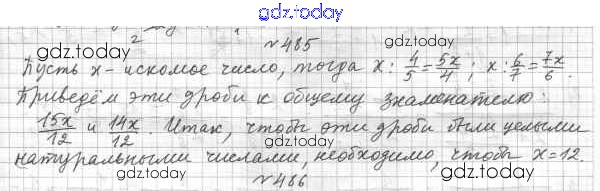 gdz.today
gdz.today
№485
gdz.today
Пусть x - искомое число, тогда x : 4/5 = 5x/4 ; x : 6/7 = 7x/6.
Приведём эти дроби к общему знаменателю:
15x/12 и 14x/12. Итак, чтобы эти дроби были целыми
натуральными числами, необходимо, чтобы x = 12.
gdz.today
№486
gdz.today